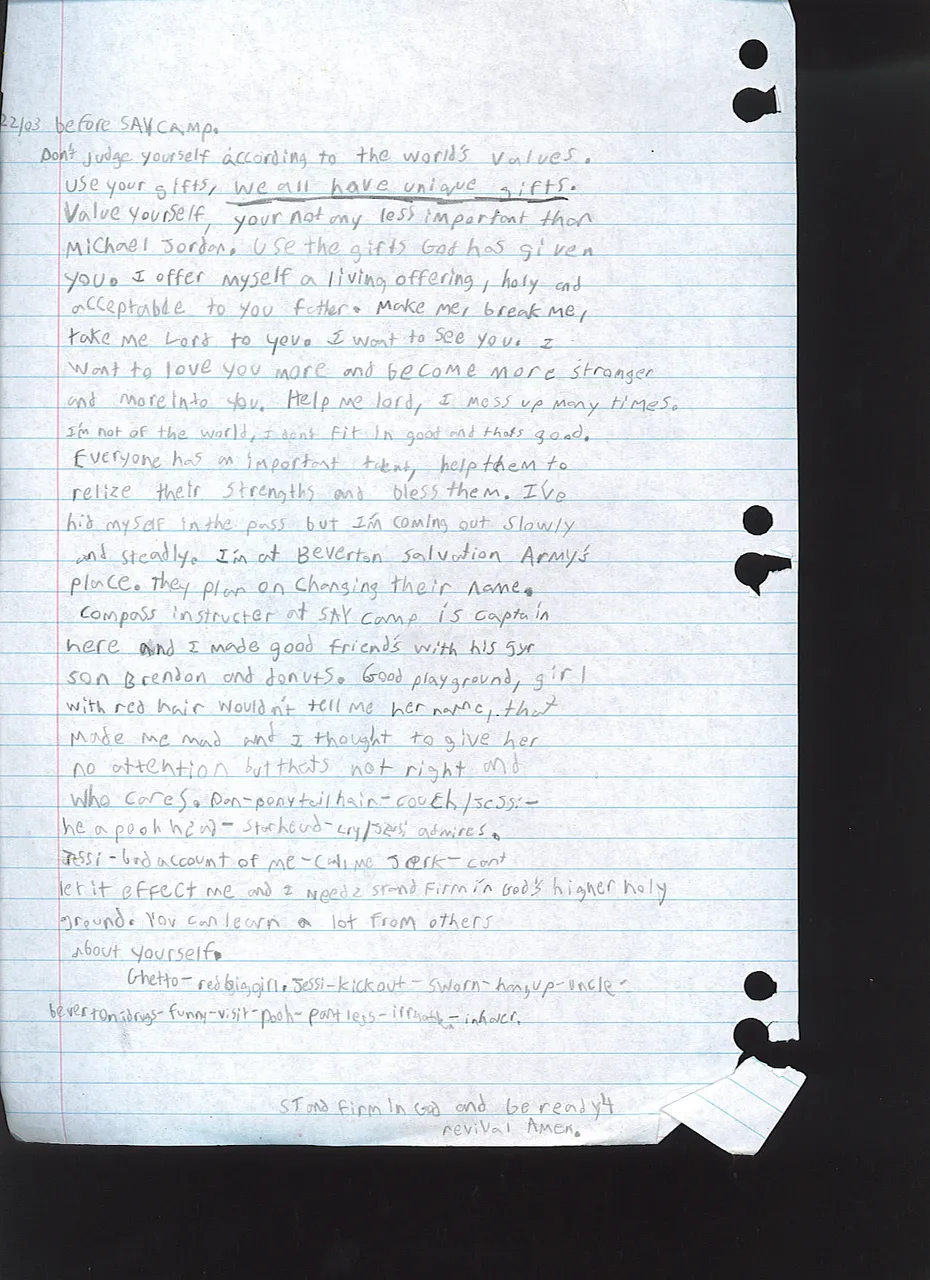 22/03 before SAYCAMP.
Don't judge yourself according to the world's values.
Use your gifts, we all have unique gifts.
Value yourself, your not any less important than
Michael Jordan. Use the gifts God has given
you. I offer myself a living offering, holy and
acceptable to you father. Make me, break me,
take me Lord to you. I want to see you. I
want to love you more and become more stronger
and more into you. Help me lord, I mess up many times.
I'm not of the world, I don't fit in good and thats good.
Everyone has an important talent, help them to
relize their strengths and bless them. I've
hid myself in the pass but I'm coming out slowly
and steadly. I'm at Beverton Salvation Army's
place. They plan on changing their name.
Compass instructer at SAY camp is captain
here and I made good friend's with his 5yr
son Brendon and donuts. Good playground, girl
with red hair wouldn't tell me her name, that
made me mad and I thought to give her
no attention but thats not right and
who cares. Dan-ponytail hair-couch/Jessi-
he a pooh head- starhead-cry/Jessi admires.
Jessi-bad account of me-call me Jerk-cant
let it effect me and I need 2 stand firm in God's higher holy
ground. You can learn a lot from others
about yourself.
Ghetto-red big girl. Jessi-kickout-sworn-hangup-uncle-
beverton drugs-funny-visit-pooh-pantless- -inhaler.
Stand firm in God and be ready 4
revival Amen.